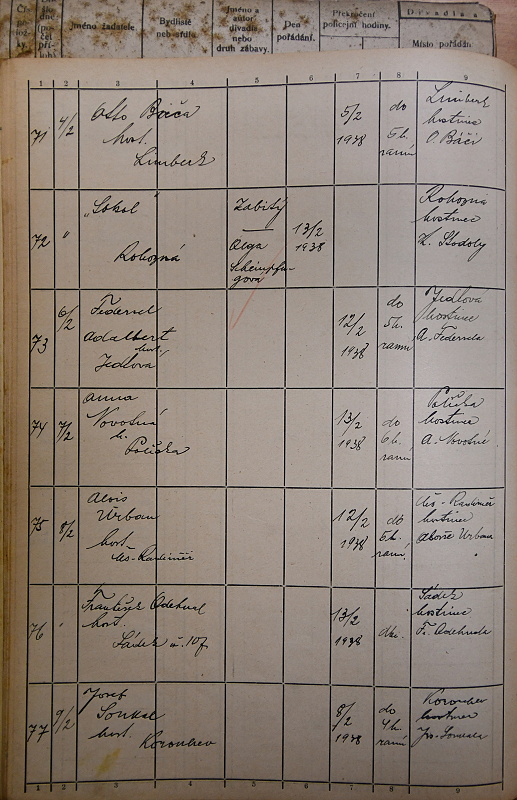 Jméno žadatele.
Bydliště
Jméno a
autor
divadla
nebo
druh zábavy.
Den
pořádání.
Překročení
policejní hodiny.
Divadla a
Místo pořádání
1 2 3 4 5 6 7 8 9
71 4/2 Otto Báča
host.
Limberk
5/2
1938
do
5 h.
ranní
Limberk
hostinec
O. Báči
72 "
„Sokol"
Rohozná
Zabitý
Olga
Scheinpflu
gová
13/2
1938
Rohozná
hostinec
73 6/2
Adalbert
host.
Jedlová
12/2
1938
do
5 h.
ranní
Jedlová
hostinec
74 7/2
Anna
Novotná
h.
Polička
13/2
1938
do
6 h.
ranní
Polička
hostinec
A. Novotné
75 8/2
Alois
Urban
host.
12/2
1938
do
5 h.
ranní
hostinec
Aloise Urban
76 "
František Odehnal
host.
Sádek č. 107
13/2
1938
Sádek
hostinec
Fr. Odehnala
77 9/2
Josef
Soukal
host.
Korouhev
8/2
1938
do
4 h.
ranní
Korouhev
hostinec
Jos. Soukala
1 2 3 4 5 6 7 8 9